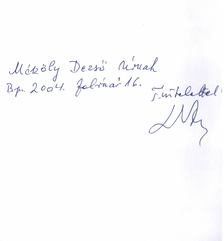 Méköly Dezső Úrnak
Bp. 2004. február 16.
Tisztelettel: